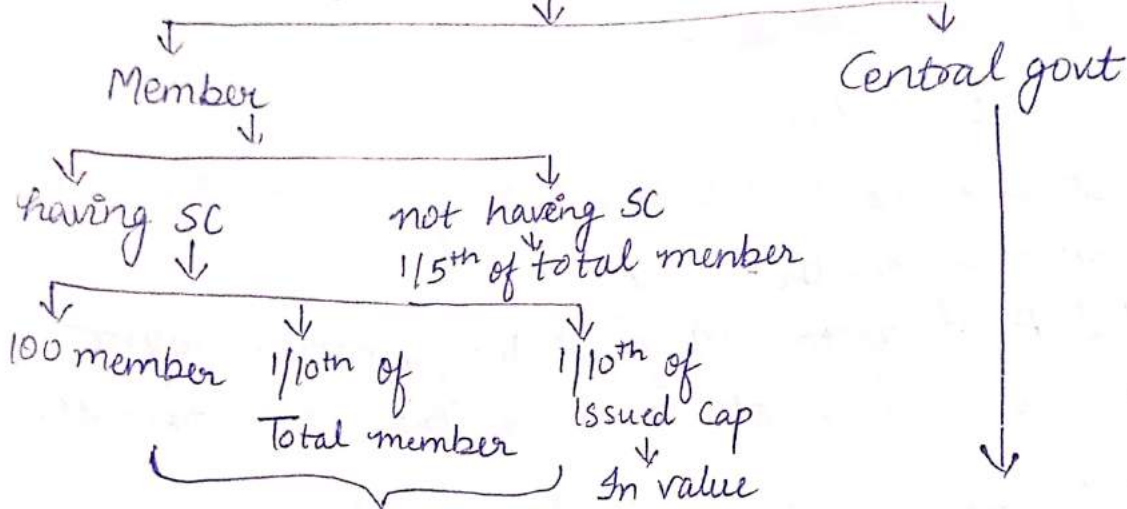 Member
Central govt
having SC
not having SC
1/5th of total member
100 member
1/10th of
Total member
1/10th of
Issued Cap
In value